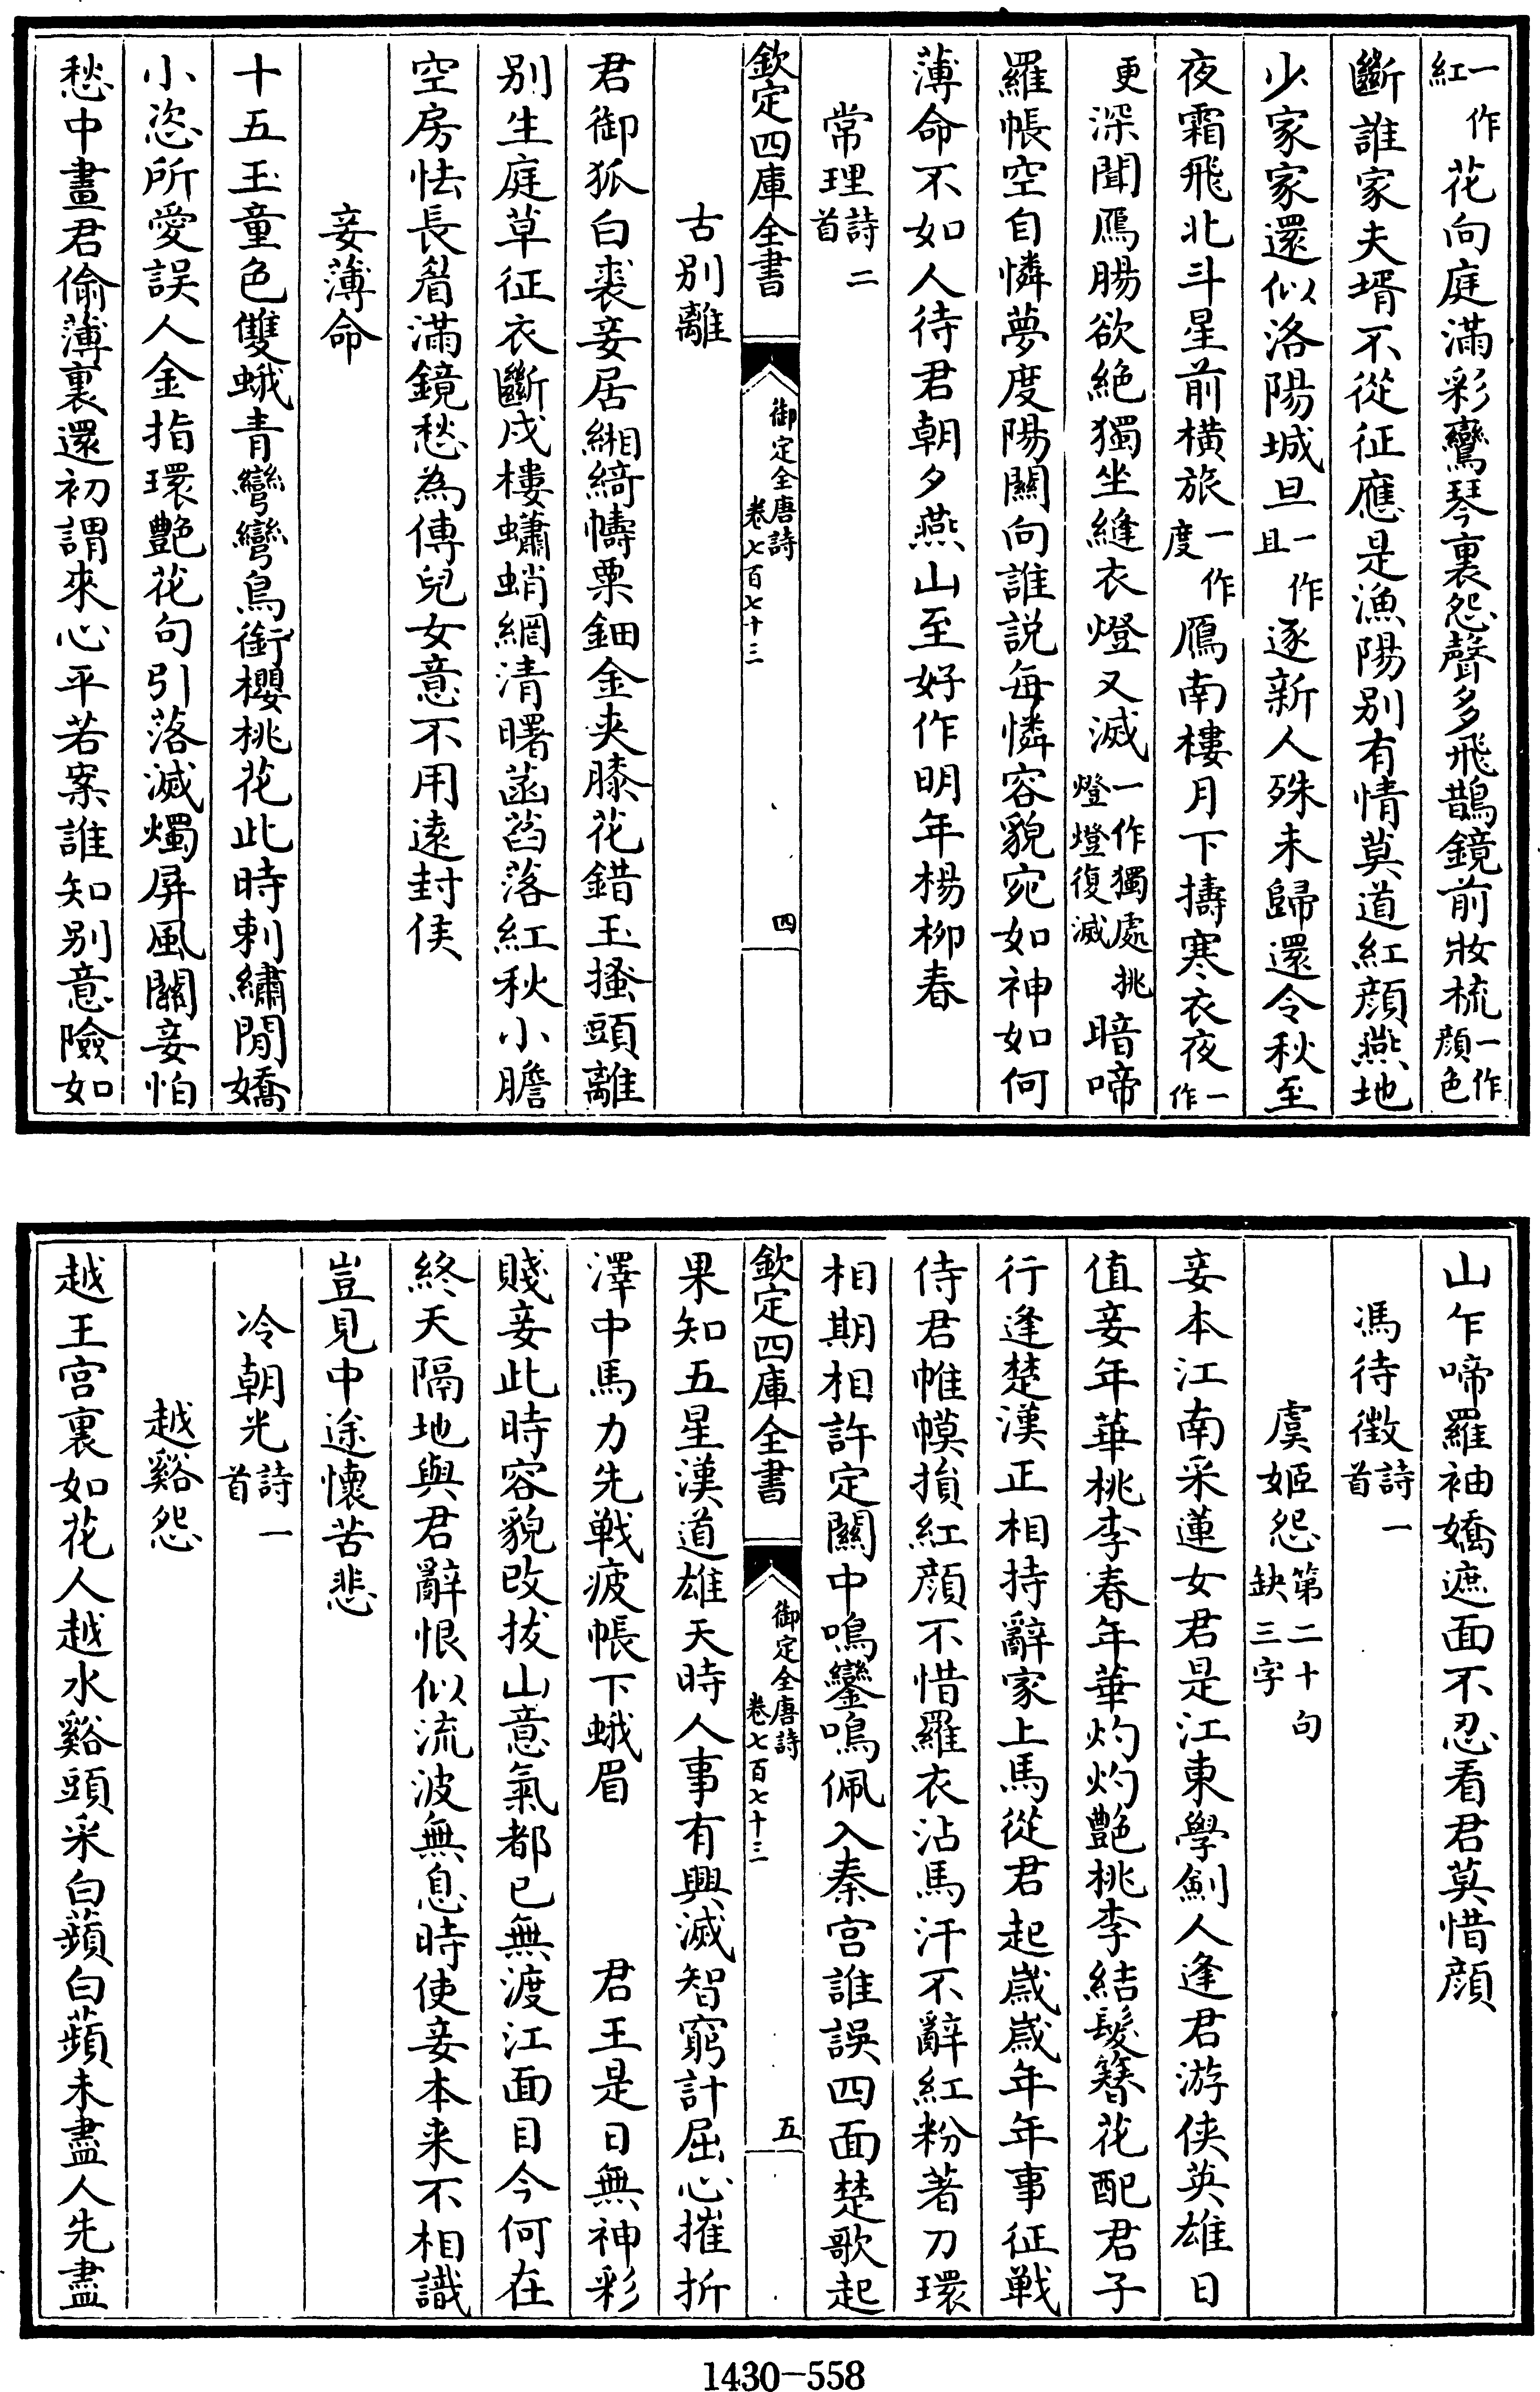 一作紅花向庭滿彩鸞琴裏怨聲多飛鵲鏡前妝梳一作顔色
斷誰家夫壻不從征應是漁陽别有情莫道紅顔燕地
少家家還似洛陽城旦一作且逐新人殊未歸還令秋至
夜霜飛北斗星前横旅一作度鴈南樓月下擣寒衣夜一作
更深聞鴈腸欲絶獨坐縫衣燈又滅一作獨處挑燈燈復滅暗啼
羅帳空自憐夢度陽關向誰説每憐容貌宛如神如何
薄命不如人待君朝夕燕山至好作明年楊柳春
常理詩二首
欽定四庫全書
御定全唐詩
卷七百七十三
四
古别離
君御狐白裘妾居緗綺幬粟鈿金夾膝花錯玉搔頭離
别生庭草征衣斷戍樓蠨蛸網清曙菡萏落紅秋小膽
空房怯長眉滿鏡愁為傳兒女意不用遠封侯
妾薄命
十五玉童色雙蛾青彎彎鳥銜櫻桃花此時刺繡閒嬌
小恣所愛誤人金指環艶花句引落滅燭屏風關妾怕
愁中畫君偷薄裏還初謂來心平若案誰知别意險如
山乍啼羅袖嬌遮面不忍看君莫惜顔
馮待徴詩一首
虞姬怨第二十句缺三字
妾本江南采蓮女君是江東學劍人逢君游俠英雄日
值妾年華桃李春年華灼灼艶桃李結髮簪花配君子
行逢楚漢正相持辭家上馬從君起歲歲年年事征戰
侍君帷幙損紅顔不惜羅衣沾馬汗不辭紅粉著刀環
相期相許定關中鳴鑾鳴佩入秦宫誰誤四面楚歌起
欽定四庫全書
御定全唐詩
卷七百七十三
五
果知五星漢道雄天時人事有興滅智窮計屈心摧折
澤中馬力先戰疲帳下蛾眉 君王是日無神彩
賤妾此時容貌改拔山意氣都已無渡江面目今何在
終天隔地與君辭恨似流波無息時使妾本来不相識
豈見中途懷苦悲
冷朝光詩一首
越谿怨
越王宫裏如花人越水谿頭采白蘋白蘋未盡人先盡
1430-558